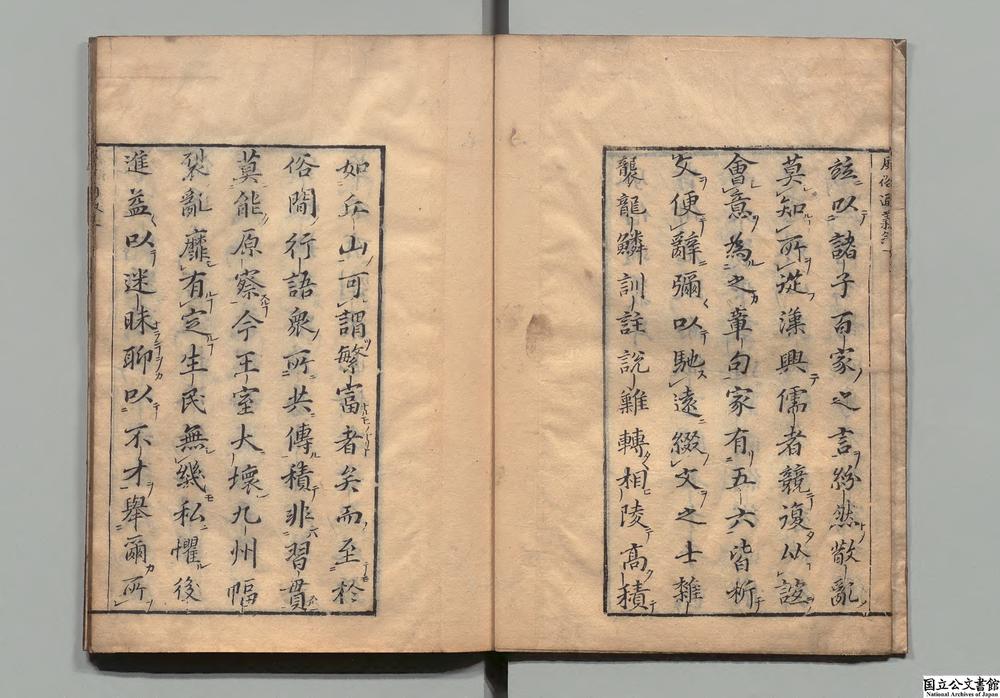 茲以諸子百家之言紛然散亂
莫知所從漢興儒者競復以誼
會意為之章句家有五六皆析
文便辭彌以馳遠綴文之士雜
襲龍鱗訓註說難轉相陵高積
如丘山可謂繁富者矣而至於
俗間行語衆所共傳積非習貫
莫能原察今王室大壞九州幅
裂亂靡有定生民無幾私懼後
進益以迷昧聊以不才舉爾所
国立公文書館
National Archives of Japan